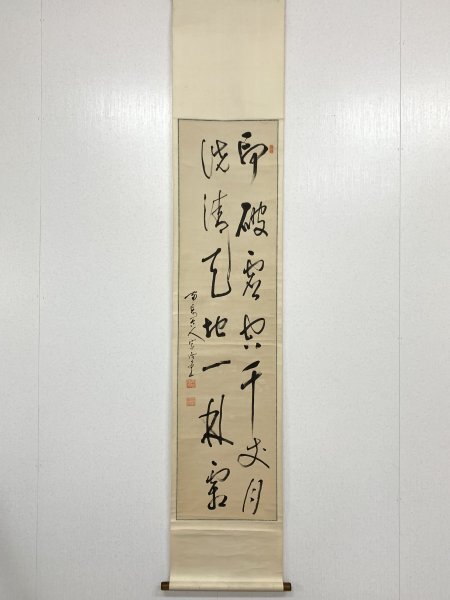 印破虚空千丈月
洗清天地一林霜